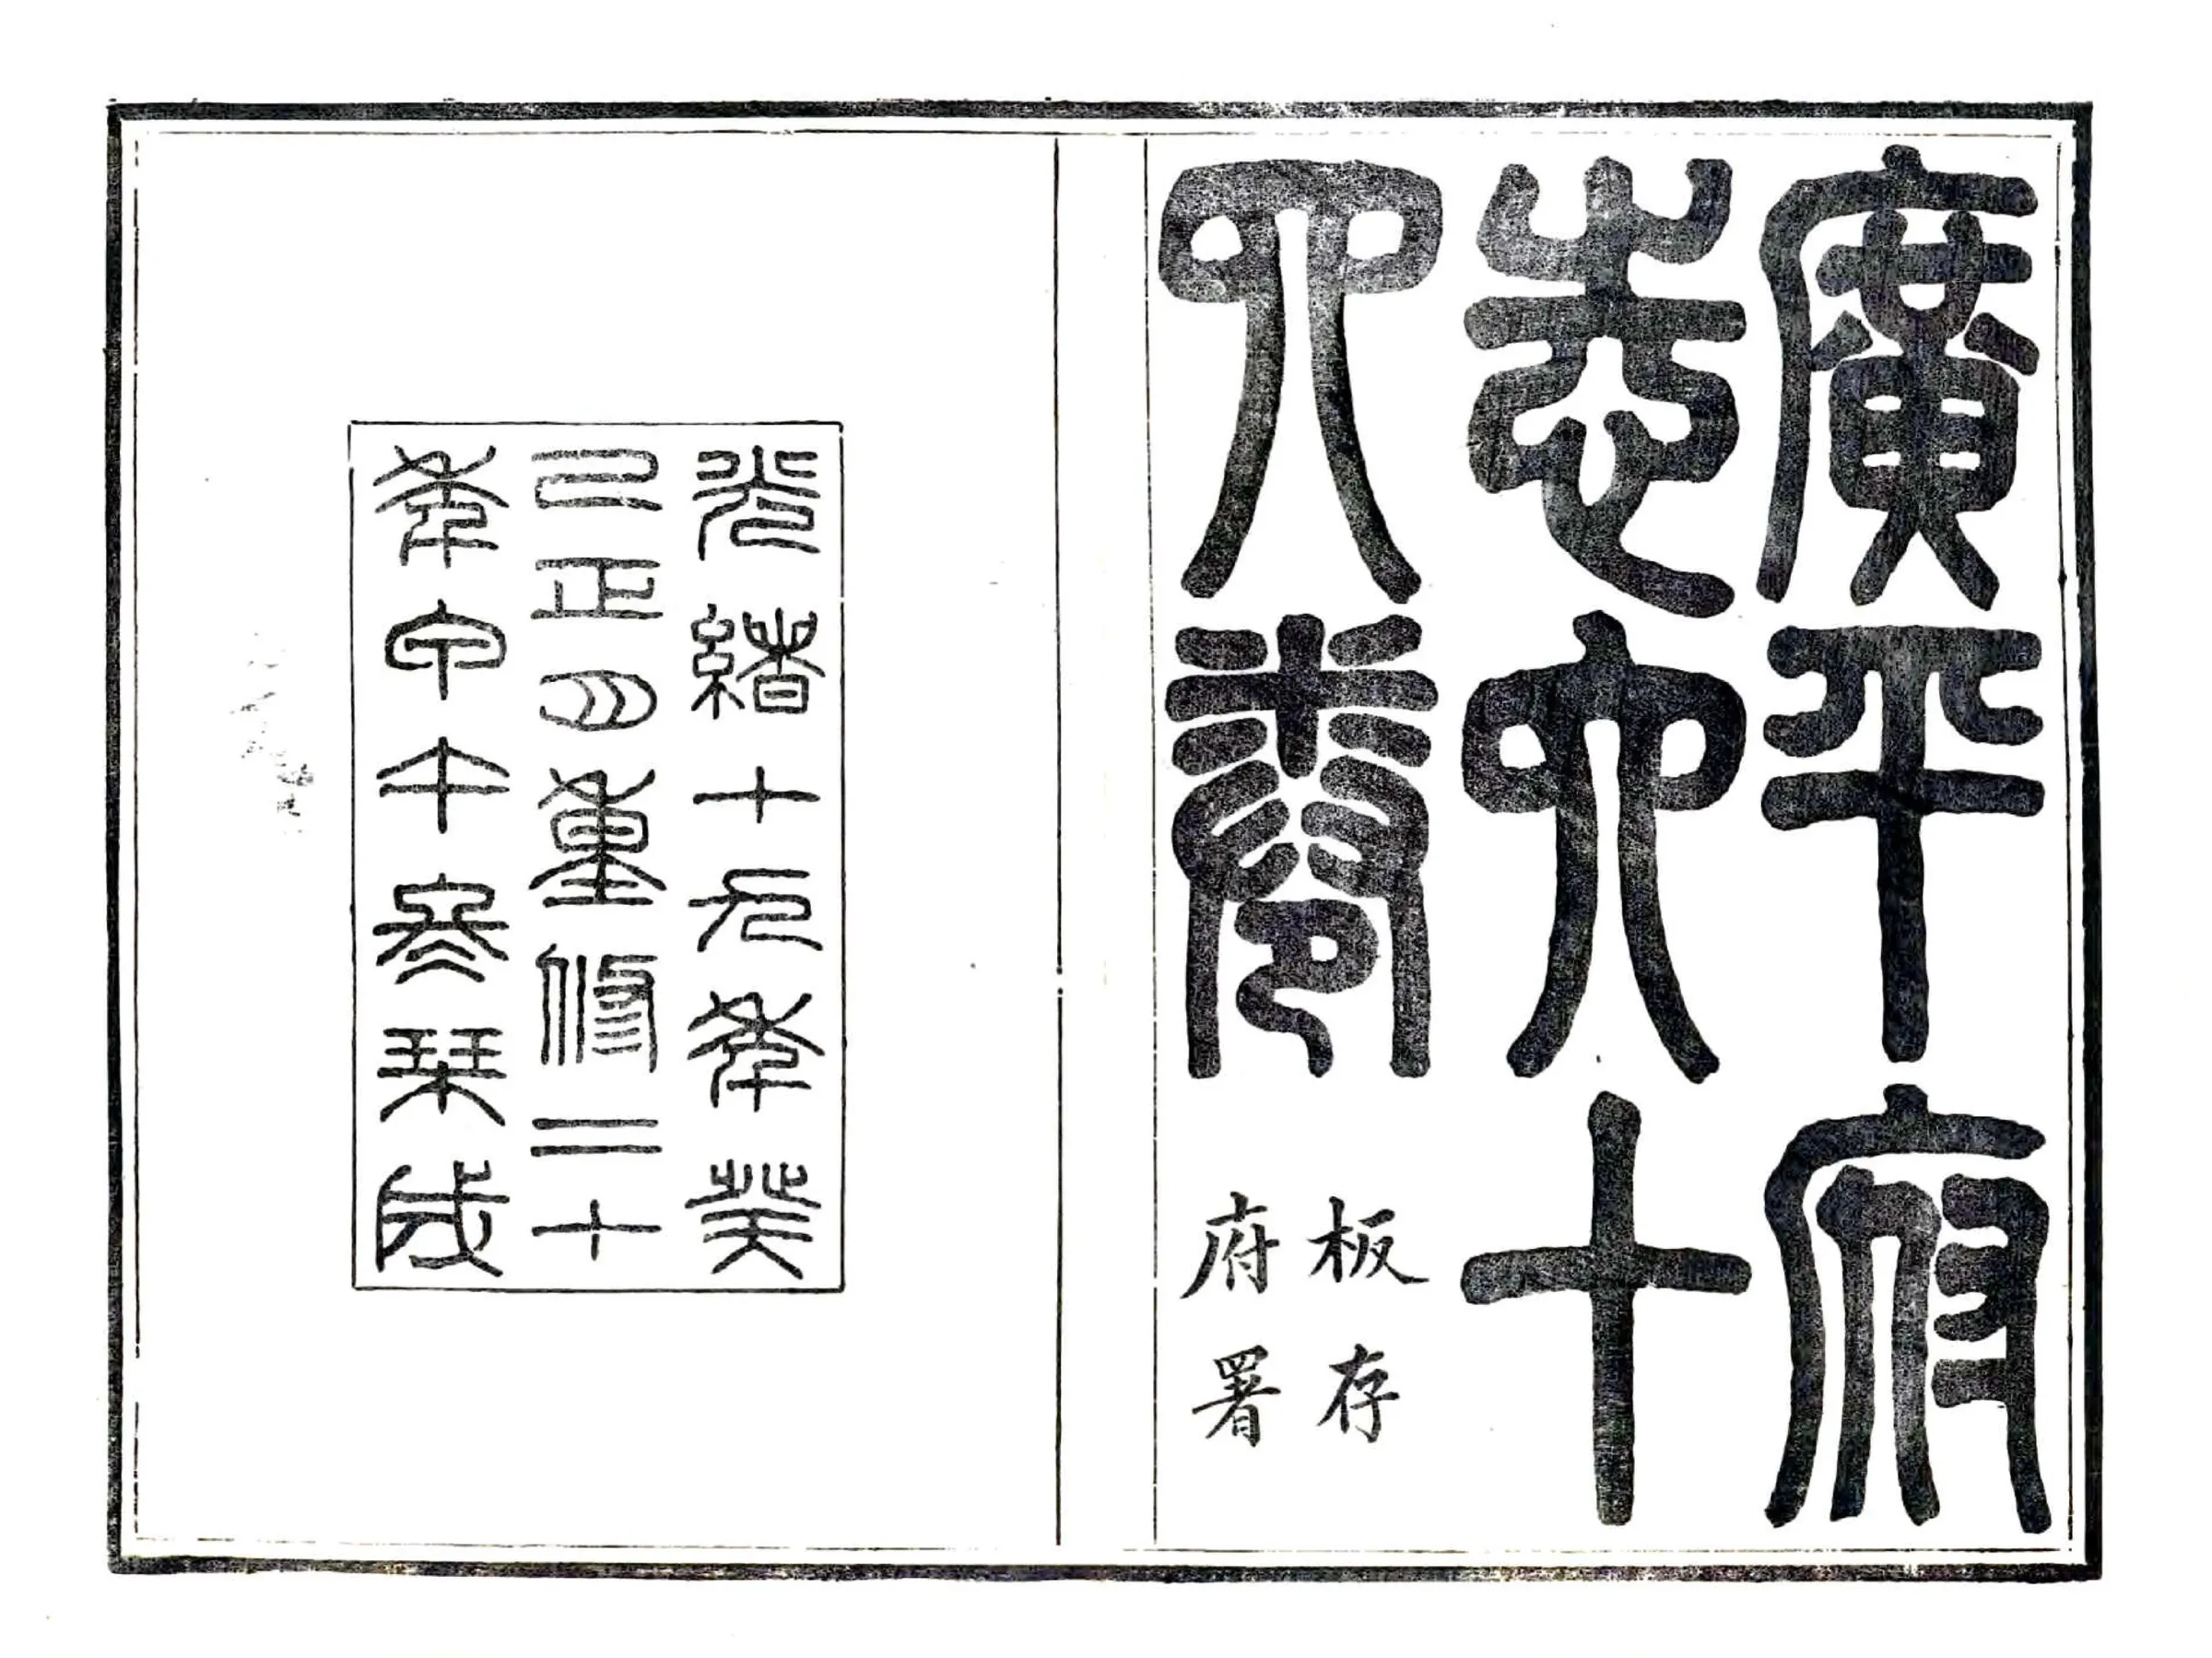 廣平府
志六十
四卷
板存
府署
光緒十九年癸
巳正月重修二十
年甲午冬栞成